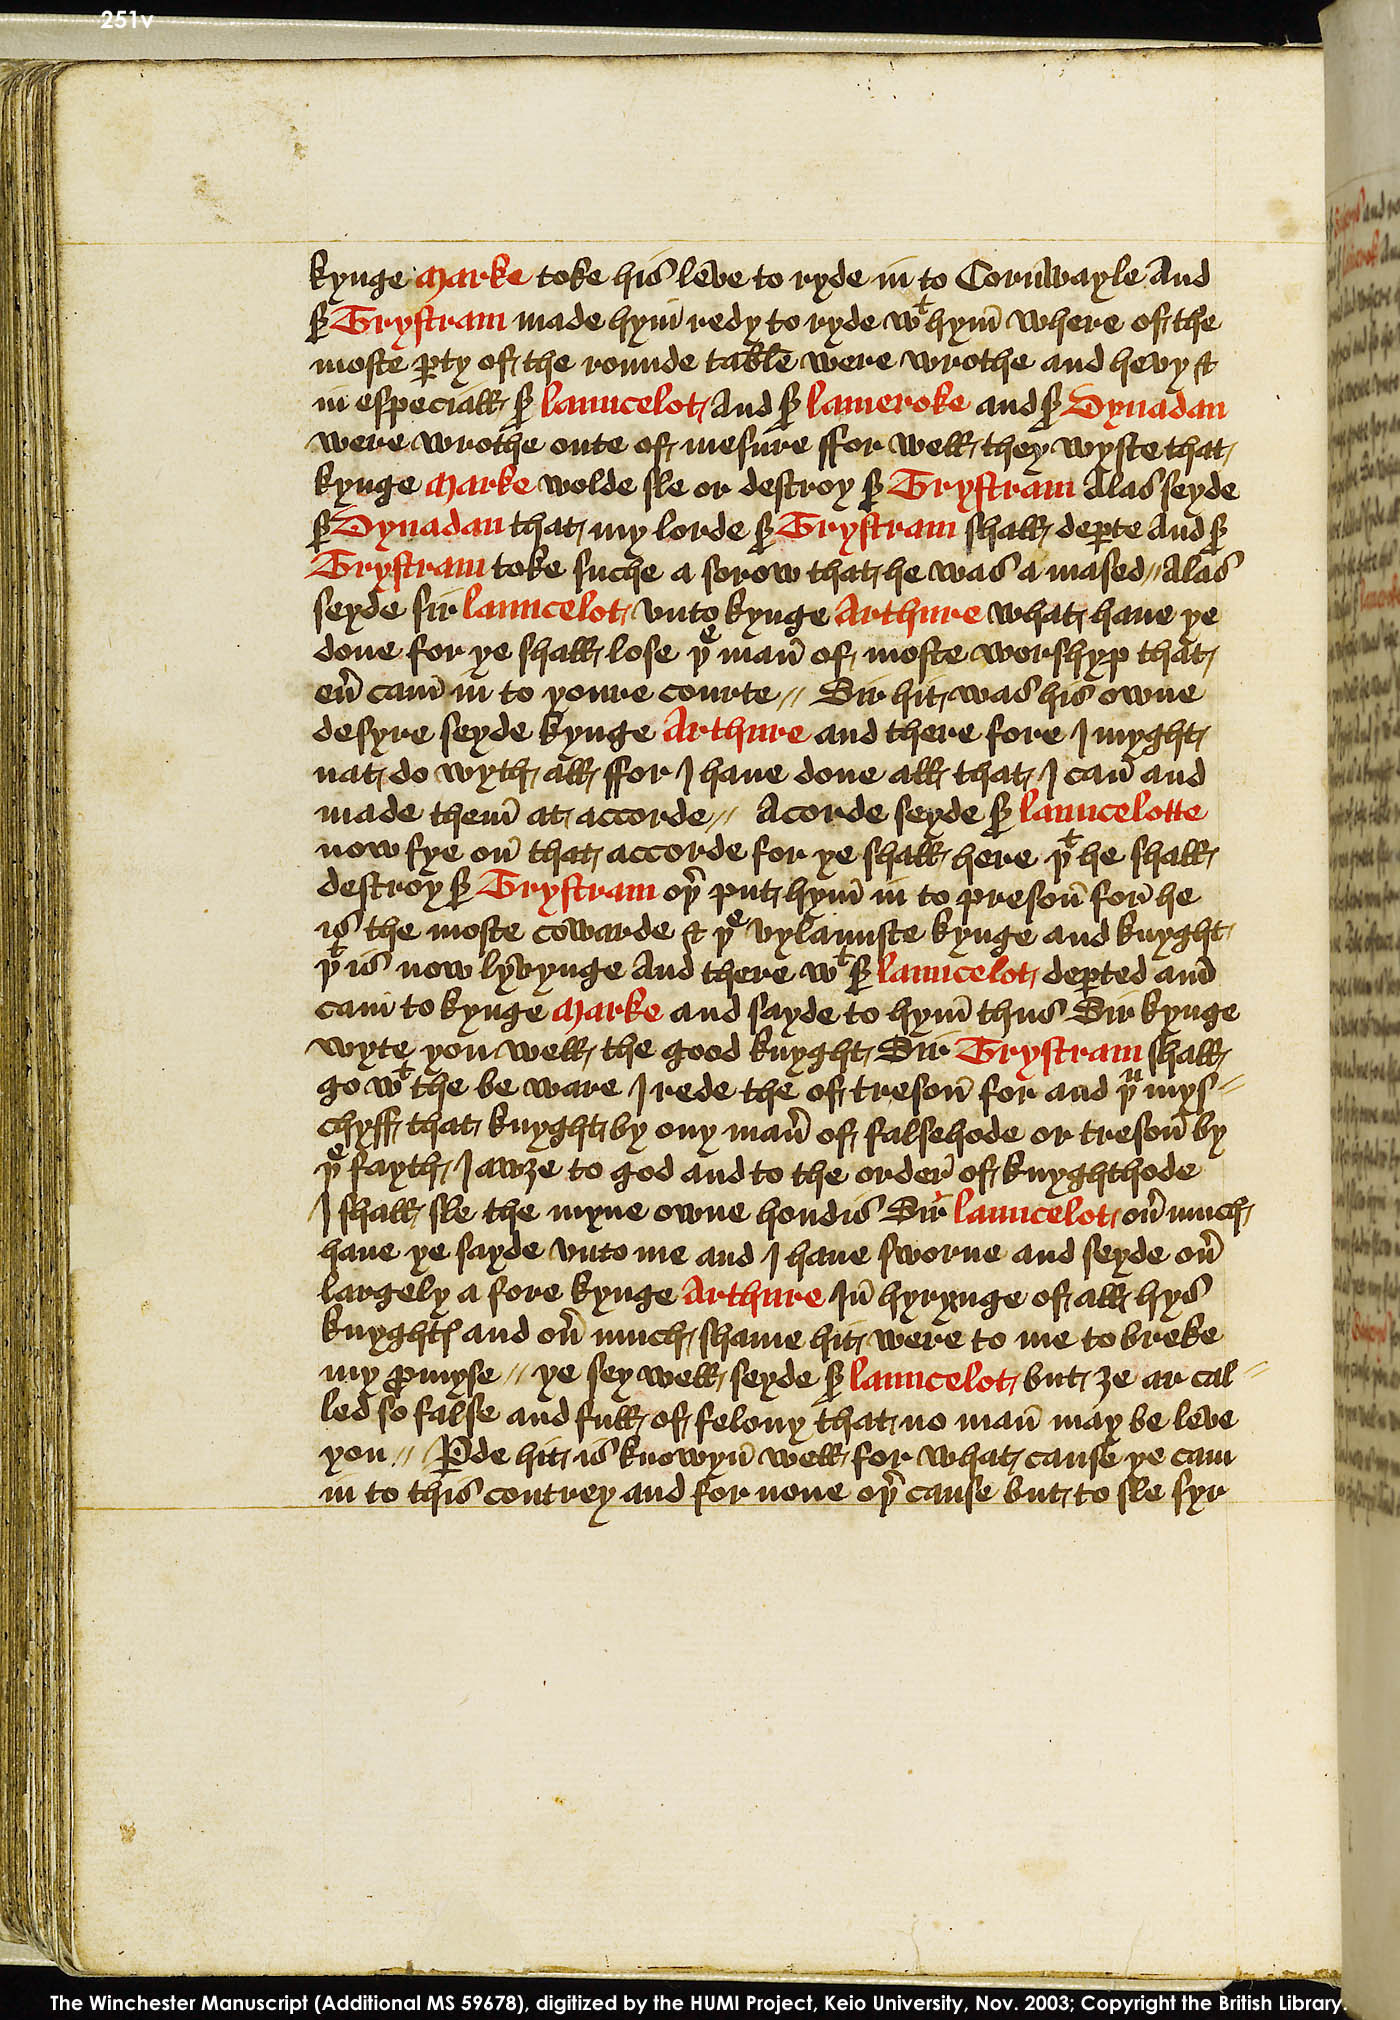 251v
kynge Marke toke his leve to ryde in to Cornwayle And
sʳ Trystram made hym̄ redy to ryde wᵗ hym̄ where of the
moste ꝑty of the rounde table were wrothe and hevy &
in especiall sʳ launcelot And sʳ lameroke and sʳ Dynadan
were wrothe oute of mesure ffor well they wyste that
kynge Marke wolde sle or destroy sʳ Trystram Alas seyde
sʳ Dynadan that my lorde sʳ Trystram shall deꝑte And sʳ
Trystram toke suche a sorow that he was a mased // Alas
seyde sir launcelot vnto kynge Arthure what haue ye
done for ye shall lose yᵉ man̄ of moste worshyp that
eu̾ cam̄ in to youre courte // Sir hit was his owne
desyre seyde kynge Arthure and there fore I myght
nat do wyth all ffor I haue done all that I can̄ and
made them̄ at accorde // Acorde seyde sʳ launcelotte
now fye on̄ that accorde for ye shall here yᵗ he shall
destroy sʳ Trystram oy̾ put hym̄ in to preson̄ for he
is the moste cowarde & yᵉ vylaunste kynge and knyght
yᵗ is now lyvynge And there wᵗ sʳ launcelot deꝑted and
cam to kynge Marke and sayde to hym̄ thus Sir kynge
wyte you well the good knyght Sir Trystram shall
go wᵗ the be ware I rede the of treson̄ for and yᵘ mys-
chyff that knyght by ony man̾ of falsehode or treson̄ by
yᵉ fayth I awze to god and to the order of knyghthode
I shall sle the myne owne hondis Sir launcelot ou̾ much
haue ye sayde vnto me and I haue sworne and seyde ou̾
largely a fore kynge Arthure In̄ hyrynge of all hys
knyghtꝭ and ou̾ much shame hit were to me to breke
my ꝓmyse // ye sey well seyde sʳ launcelot but ze ar cal-
led so false and full of felony that no man̄ may be leve
you // Ꝑde hit is knowyn̄ well for what cause ye cam
in to this contrey and for none oy̾ cause but to sle syr
The Winchester Manuscript (Additional MS 59678), digitized by the HUMI Project, Keio University, Nov. 2003; Copyright the British Library.